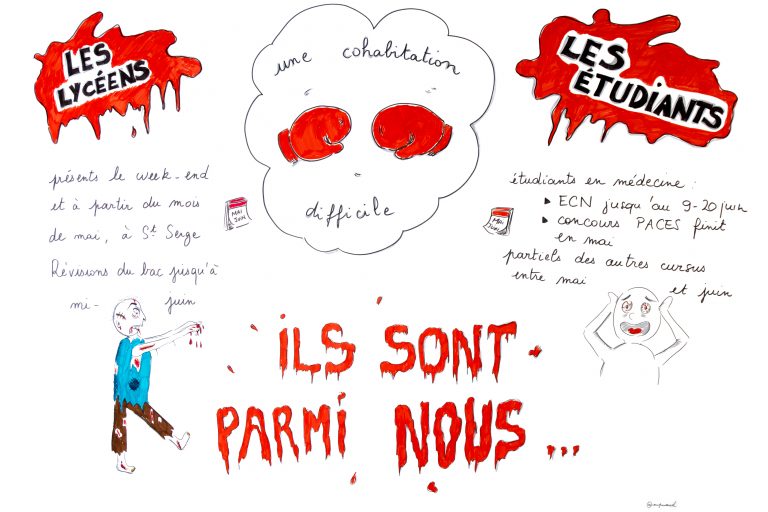 LES
LYCÉENS
présents le week-end
et à partir du mois
de mai, à St Serge
Révisions du bac jusqu'à
mi- juin
MAI
JUIN
une cohabitation
difficile
LES
ÉTUDIANTS
étudiants en médecine :
▸ ECN jusqu'au 9-20 juin
▸ concours PACES finit
en mai
partiels des autres cursus
entre mai
et juin
MAI
JUIN
ILS SONT
PARMI NOUS...